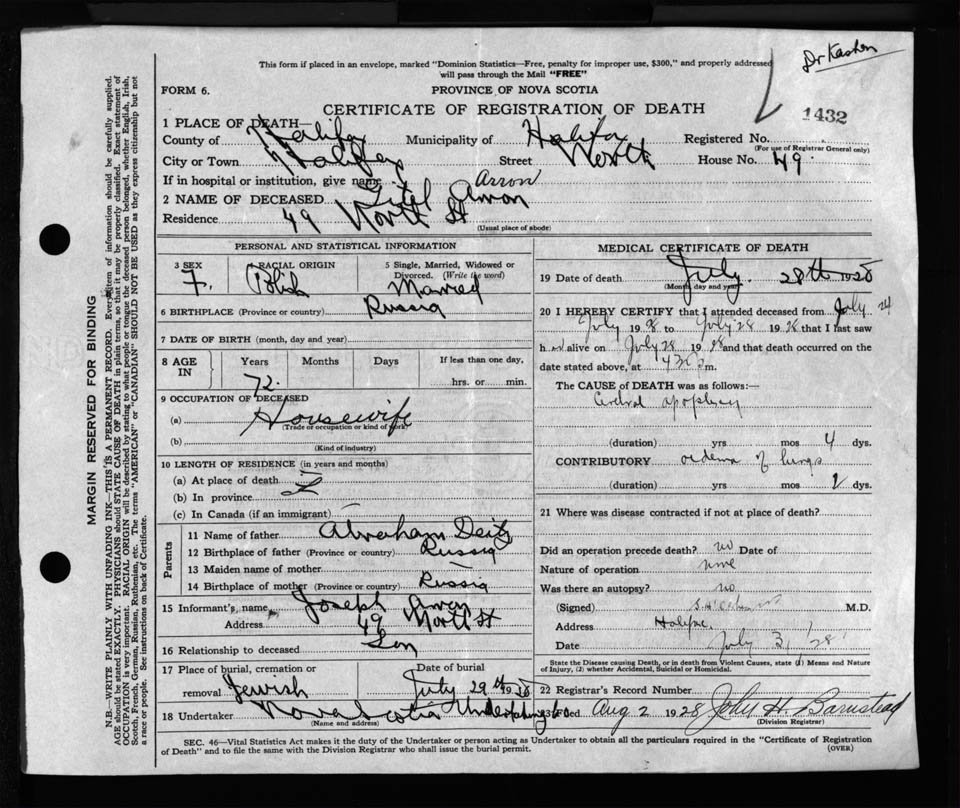 Dr Kashen
This form if placed in an envelope, marked "Dominion Statistics—Free, penalty for improper use, $300," and properly addressed
will pass through the Mail "FREE"
FORM 6.
PROVINCE OF NOVA SCOTIA
1432
CERTIFICATE OF REGISTRATION OF DEATH
1 PLACE OF DEATH—
County of Halifax Municipality of Halifax Registered No.
(For use of Registrar General only)
City or Town Halifax Street North House No. 49.
If in hospital or institution, give name
Arron
2 NAME OF DECEASED Gitel Arron
Residence 49 North St
(Usual place of abode)
MARGIN RESERVED FOR BINDING
N.B.—WRITE PLAINLY WITH UNFADING INK—THIS IS A PERMANENT RECORD. Every item of information should be carefully supplied.
AGE should be stated EXACTLY. PHYSICIANS should STATE CAUSE OF DEATH in plain terms, so that it may be properly classified. Exact statement of
OCCUPATION is very important. RACIAL ORIGIN will be described by stating to what people or tongue the deceased person belonged, whether English, Irish,
Scotch, French, German, Russian, Ruthenian, etc. The terms "AMERICAN" or "CANADIAN" SHOULD NOT BE USED as they express citizenship but not
a race or people. See instructions on back of Certificate.
PERSONAL AND STATISTICAL INFORMATION
3 SEX
F.
4 RACIAL ORIGIN
Polish
5 Single, Married, Widowed or
Divorced. (Write the word)
Married
6 BIRTHPLACE (Province or country) Russia
7 DATE OF BIRTH (month, day and year)
8 AGE
IN
Years Months Days If less than one day,
72. hrs. or min.
9 OCCUPATION OF DECEASED
(a) Housewife
(Trade or occupation or kind of work)
(b)
(Kind of industry)
10 LENGTH OF RESIDENCE (in years and months)
(a) At place of death
(b) In province
(c) In Canada (if an immigrant)
Parents
11 Name of father Abraham Deitz
12 Birthplace of father (Province or country) Russia
13 Maiden name of mother —
14 Birthplace of mother (Province or country) Russia
15 Informant's name Joseph Arron
Address 49 North St
16 Relationship to deceased Son
17 Place of burial, cremation or
removal Jewish
Date of burial
July 29th 1928
18 Undertaker Nova Scotia Undertaking Co
(Name and address)
MEDICAL CERTIFICATE OF DEATH
19 Date of death July 28th 1928
(Month, day and year)
20 I HEREBY CERTIFY that I attended deceased from July 24
July 1928 to July 28 1928 that I last saw
h er alive on July 28 1928 and that death occurred on the
date stated above, at 430 p m.
The CAUSE of DEATH was as follows:—
Cerebral apoplexy
(duration) yrs mos 4 dys.
CONTRIBUTORY oedema of lungs
(duration) yrs mos dys.
21 Where was disease contracted if not at place of death?
Did an operation precede death? no Date of
Nature of operation none
Was there an autopsy? no
(Signed) M.D.
Address Halifax
Date July 31, '28
State the Disease causing Death, or in death from Violent Causes, state (1) Means and Nature
of Injury, (2) whether Accidental, Suicidal or Homicidal.
22 Registrar's Record Number
23 Filed Aug 2 1928 John H. Barnstead
(Division Registrar)
SEC. 46—Vital Statistics Act makes it the duty of the Undertaker or person acting as Undertaker to obtain all the particulars required in the "Certificate of Registration
of Death" and to file the same with the Division Registrar who shall issue the burial permit.
(OVER)